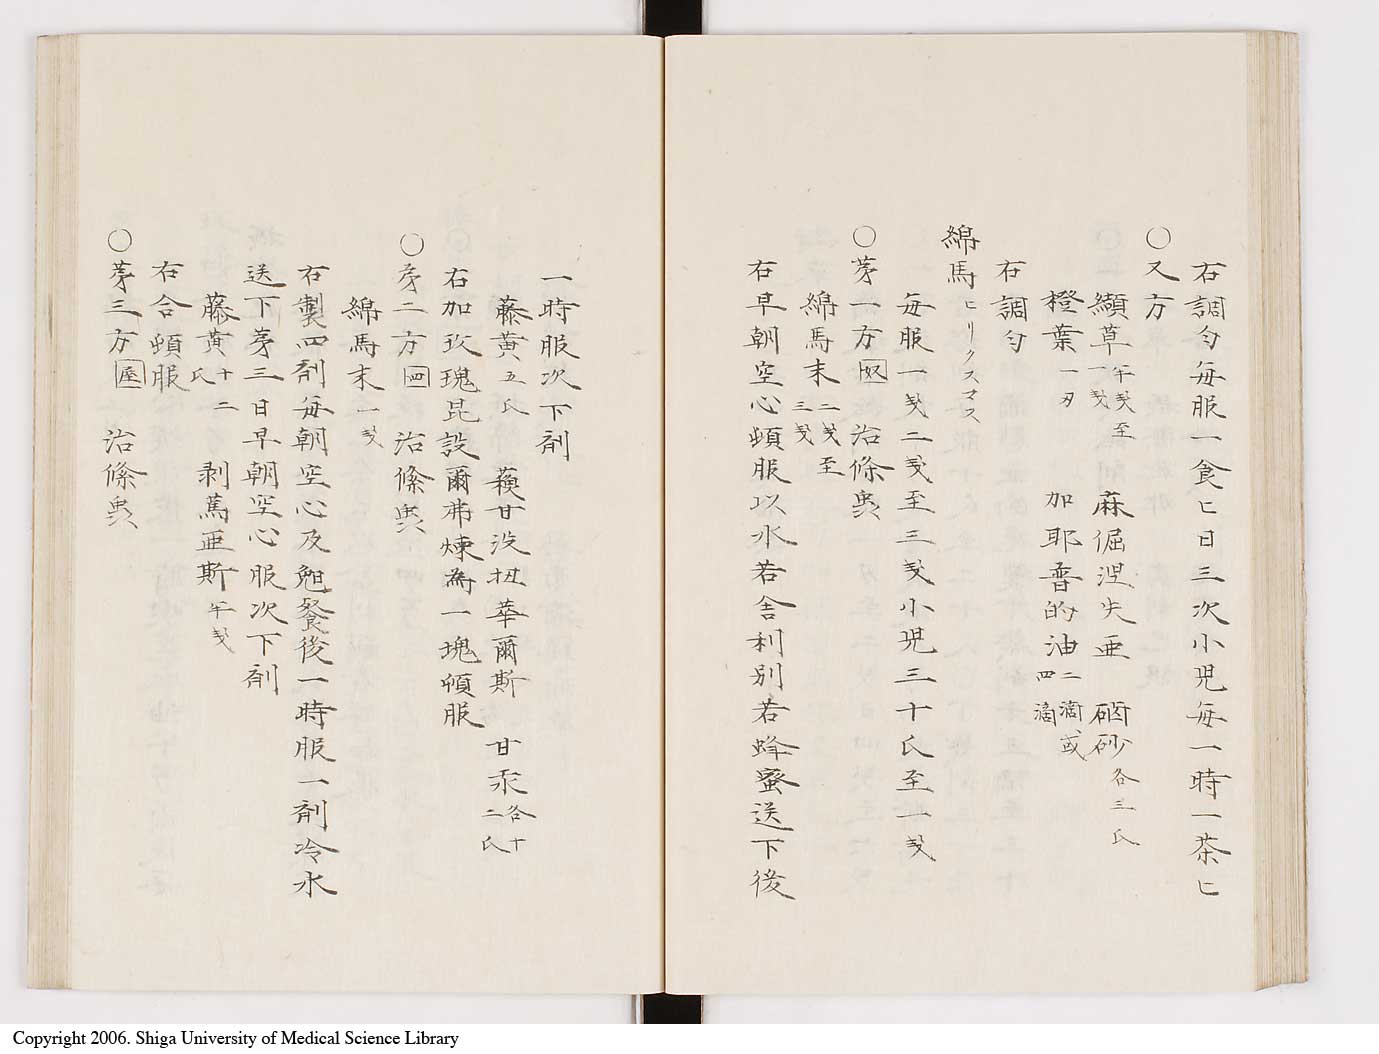 右調匀每服一食匕日三次小児每一時一茶匕
〇又方
纈草半戔至一戔 麻倔涅失亜 硇砂各三氏
橙葉一刃 加耶普的油二滴或四滴
右調匀
綿馬ヒリクスマス
每服一戔二戔至三戔小児三十氏至一戔
〇茅一方 治條虫
綿馬末二戔至三戔
右早朝空心頓服以水若舎利別若蜂蜜送下後
一時服次下剤
藤黄五氏 蕿甘没扭華爾斯 甘汞各十二氏
右加玫瑰昆設爾弗煉為一塊頓服
〇茅二方 治條虫
綿馬末一戔
右製四剤每朝空心及晩餐後一時服一剤冷水
送下茅三日早朝空心服次下剤
藤黄十二氏 剥篤亜斯半戔
右合頓服
〇茅三方 治條虫
Copyright 2006. Shiga University of Medical Science Library